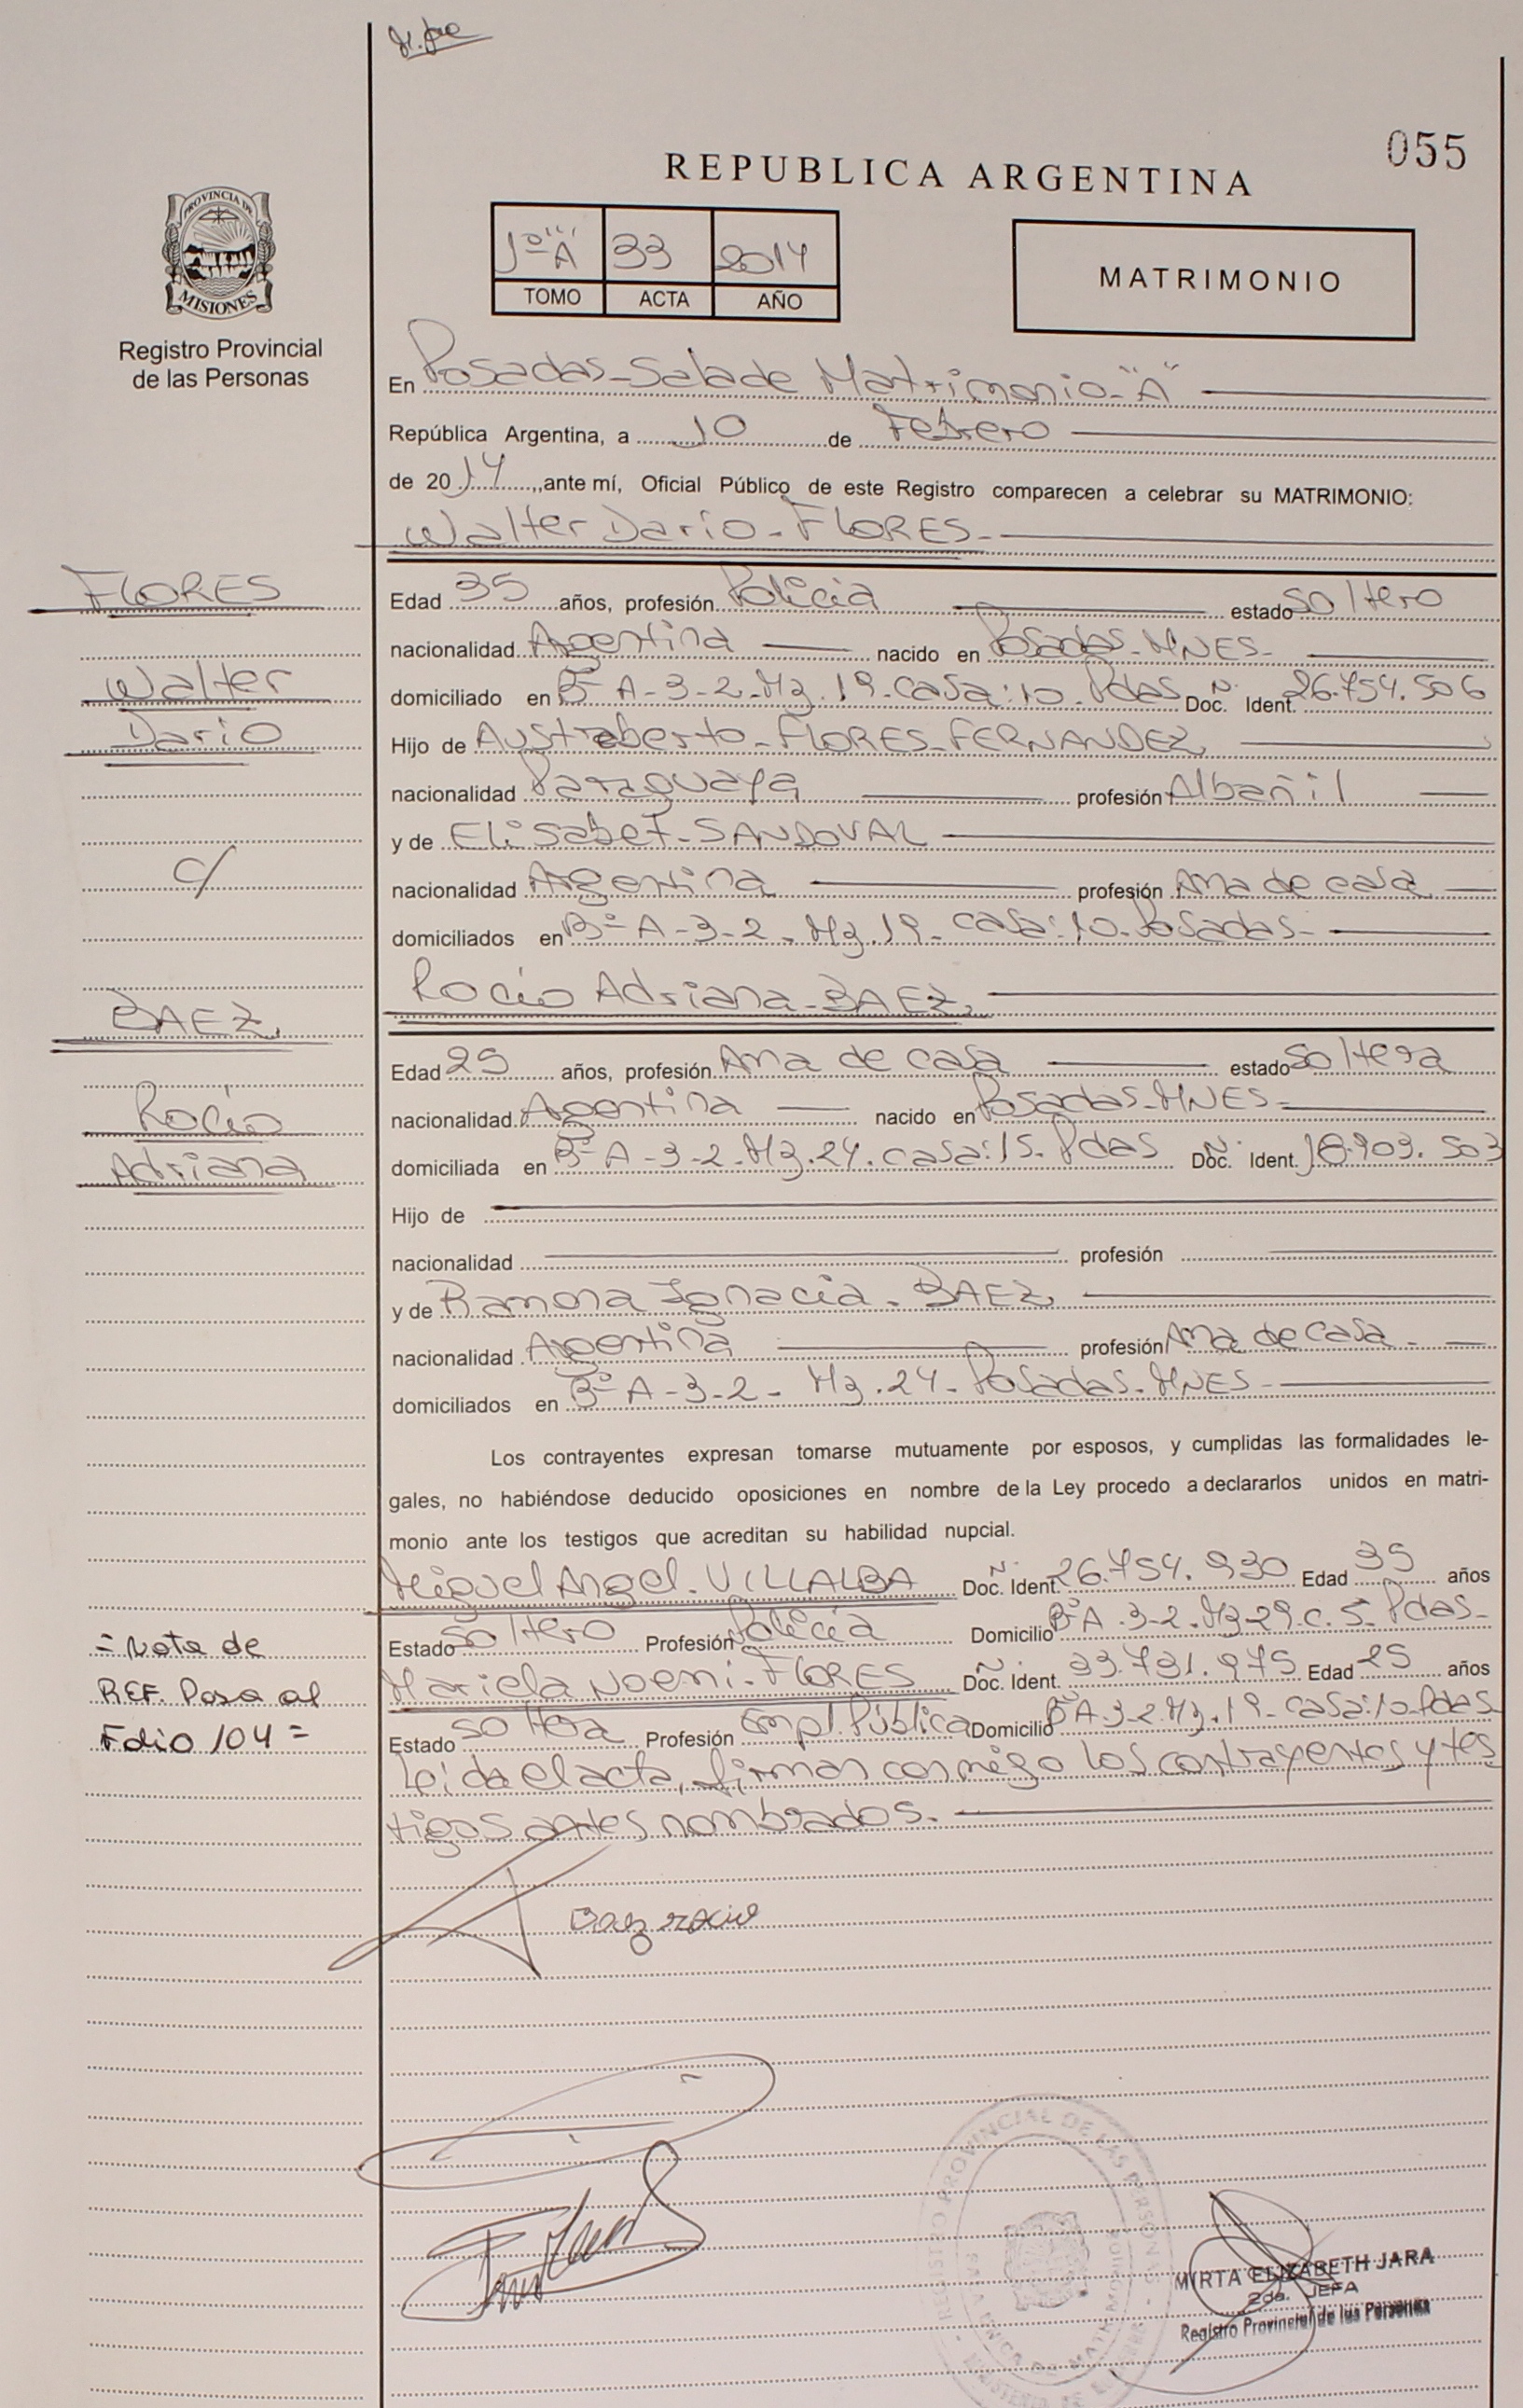 055
REPUBLICA ARGENTINA
PROVINCIA DE
MISIONES
Registro Provincial
de las Personas
1º "A" 33 2014
TOMO ACTA AÑO
MATRIMONIO
En Posadas-Sala de Matrimonio-"A"
República Argentina, a 10 de Febrero
de 2014, ante mí, Oficial Público de este Registro comparecen a celebrar su MATRIMONIO:
Walter Dario-FLORES-
FLORES
Walter
Dario
c/
BAEZ
Rocío
Adriana
Edad 35 años, profesión Policía estado soltero
nacionalidad Argentina nacido en Posadas-MNES-
domiciliado en Bº A-3-2-Mz.19-casa:10-Pdas Doc. Ident. Nº 26.754.506
Hijo de Austraberto-FLORES-FERNANDEZ
nacionalidad Paraguaya profesión Albañil
y de Elisabet-SANDOVAL
nacionalidad Argentina profesión Ama de casa
domiciliados en Bº A-3-2-Mz.19-casa:10-Posadas-
Rocío Adriana-BAEZ
Edad 25 años, profesión Ama de casa estado soltera
nacionalidad Argentina nacido en Posadas-MNES-
domiciliada en Bº A-3-2-Mz.24.casa:15-Pdas Doc. Ident. Nº 18.903.503
Hijo de
nacionalidad profesión
y de Ramona Ignacia-BAEZ
nacionalidad Argentina profesión Ama de casa-
domiciliados en Bº A-3-2- Mz.24-Posadas-MNES-
Los contrayentes expresan tomarse mutuamente por esposos, y cumplidas las formalidades le-
gales, no habiéndose deducido oposiciones en nombre de la Ley procedo a declararlos unidos en matri-
monio ante los testigos que acreditan su habilidad nupcial.
Miguel Angel-VILLALBA Doc. Ident. Nº 26.754.930 Edad 35 años
Estado soltero Profesión Policía Domicilio Bº A-3-2-Mz29-c.5-Pdas-
Mariela Noemi-FLORES Doc. Ident. Nº 33.731.975 Edad 25 años
Estado soltera Profesión Empl. Pública Domicilio Bº A-3-2-Mz.19-casa:10-Pdas
Leida el acta, firman conmigo los contrayentes y tes
tigos antes nombrados.-
=Nota de
REF. Pasa al
Folio 104=
Baez rocio
REGISTRO PROVINCIAL DE LAS PERSONAS
MIRTA ELIZABETH JARA
2da. JEFA
Registro Provincial de las Personas